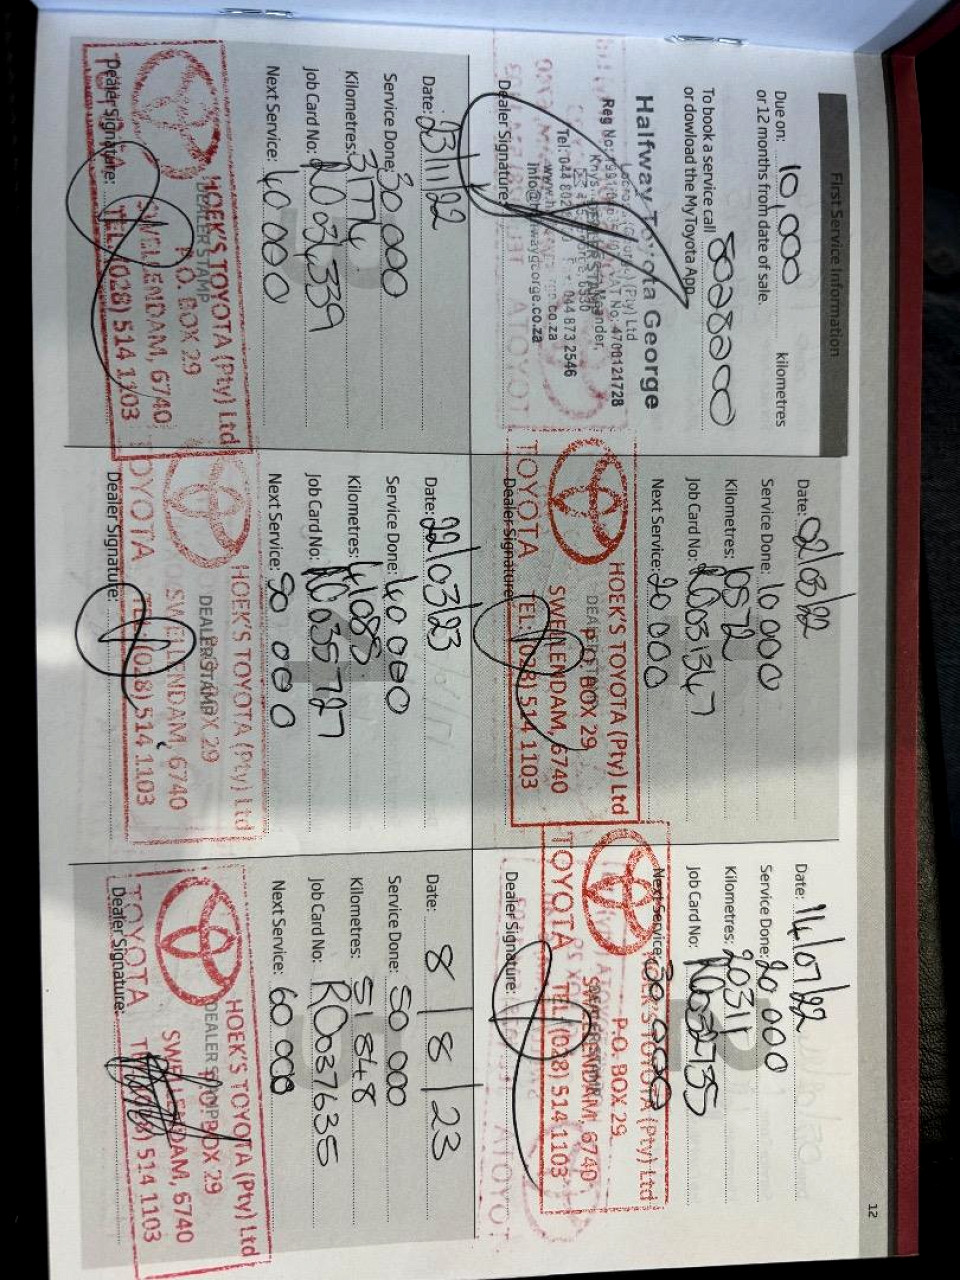 12
First Service Information
Due on: 10,000 kilometres
or 12 months from date of sale.
To book a service call 8028200
or dowload the MyToyota App.
Halfway Toyota George
Reg No:
VAT No: 4700121728
Tel: 044 802
044 873 2546
www.h
co.za
info@halfwaygeorge.co.za
Dealer Signature:
Date: 02/03/22
Service Done: 10 000
Kilometres: 10572
Job Card No: R0031347
Next Service: 20 000
HOEK'S TOYOTA (Pty) Ltd
DEALER STAMP
P.O. BOX 29
SWELLENDAM, 6740
TOYOTA TEL: (028) 514 1103
Dealer Signature:
Date: 14/07/22
Service Done: 20 000
Kilometres: 20311
Job Card No: R0032735
Next Service: 30 000
HOEK'S TOYOTA (Pty) Ltd
P.O. BOX 29
SWELLENDAM, 6740
TOYOTA TEL: (028) 514 1103
Dealer Signature:
Date: 23/11/22
Service Done: 30 000
Kilometres: 31774
Job Card No: R0034339
Next Service: 40 000
HOEK'S TOYOTA (Pty) Ltd
DEALER STAMP
P.O. BOX 29
SWELLENDAM, 6740
TEL: (028) 514 1103
Dealer Signature:
Date: 22/03/23
Service Done: 40 000
Kilometres: 41085
Job Card No: R0035727
Next Service: 50 000
HOEK'S TOYOTA (Pty) Ltd
DEALER STAMP
P.O. BOX 29
SWELLENDAM, 6740
TOYOTA TEL: (028) 514 1103
Dealer Signature:
Date: 8/8/23
Service Done: 50 000
Kilometres: 51848
Job Card No: R0037635
Next Service: 60 000
HOEK'S TOYOTA (Pty) Ltd
DEALER STAMP
P.O. BOX 29
SWELLENDAM, 6740
TOYOTA TEL: (028) 514 1103
Dealer Signature: